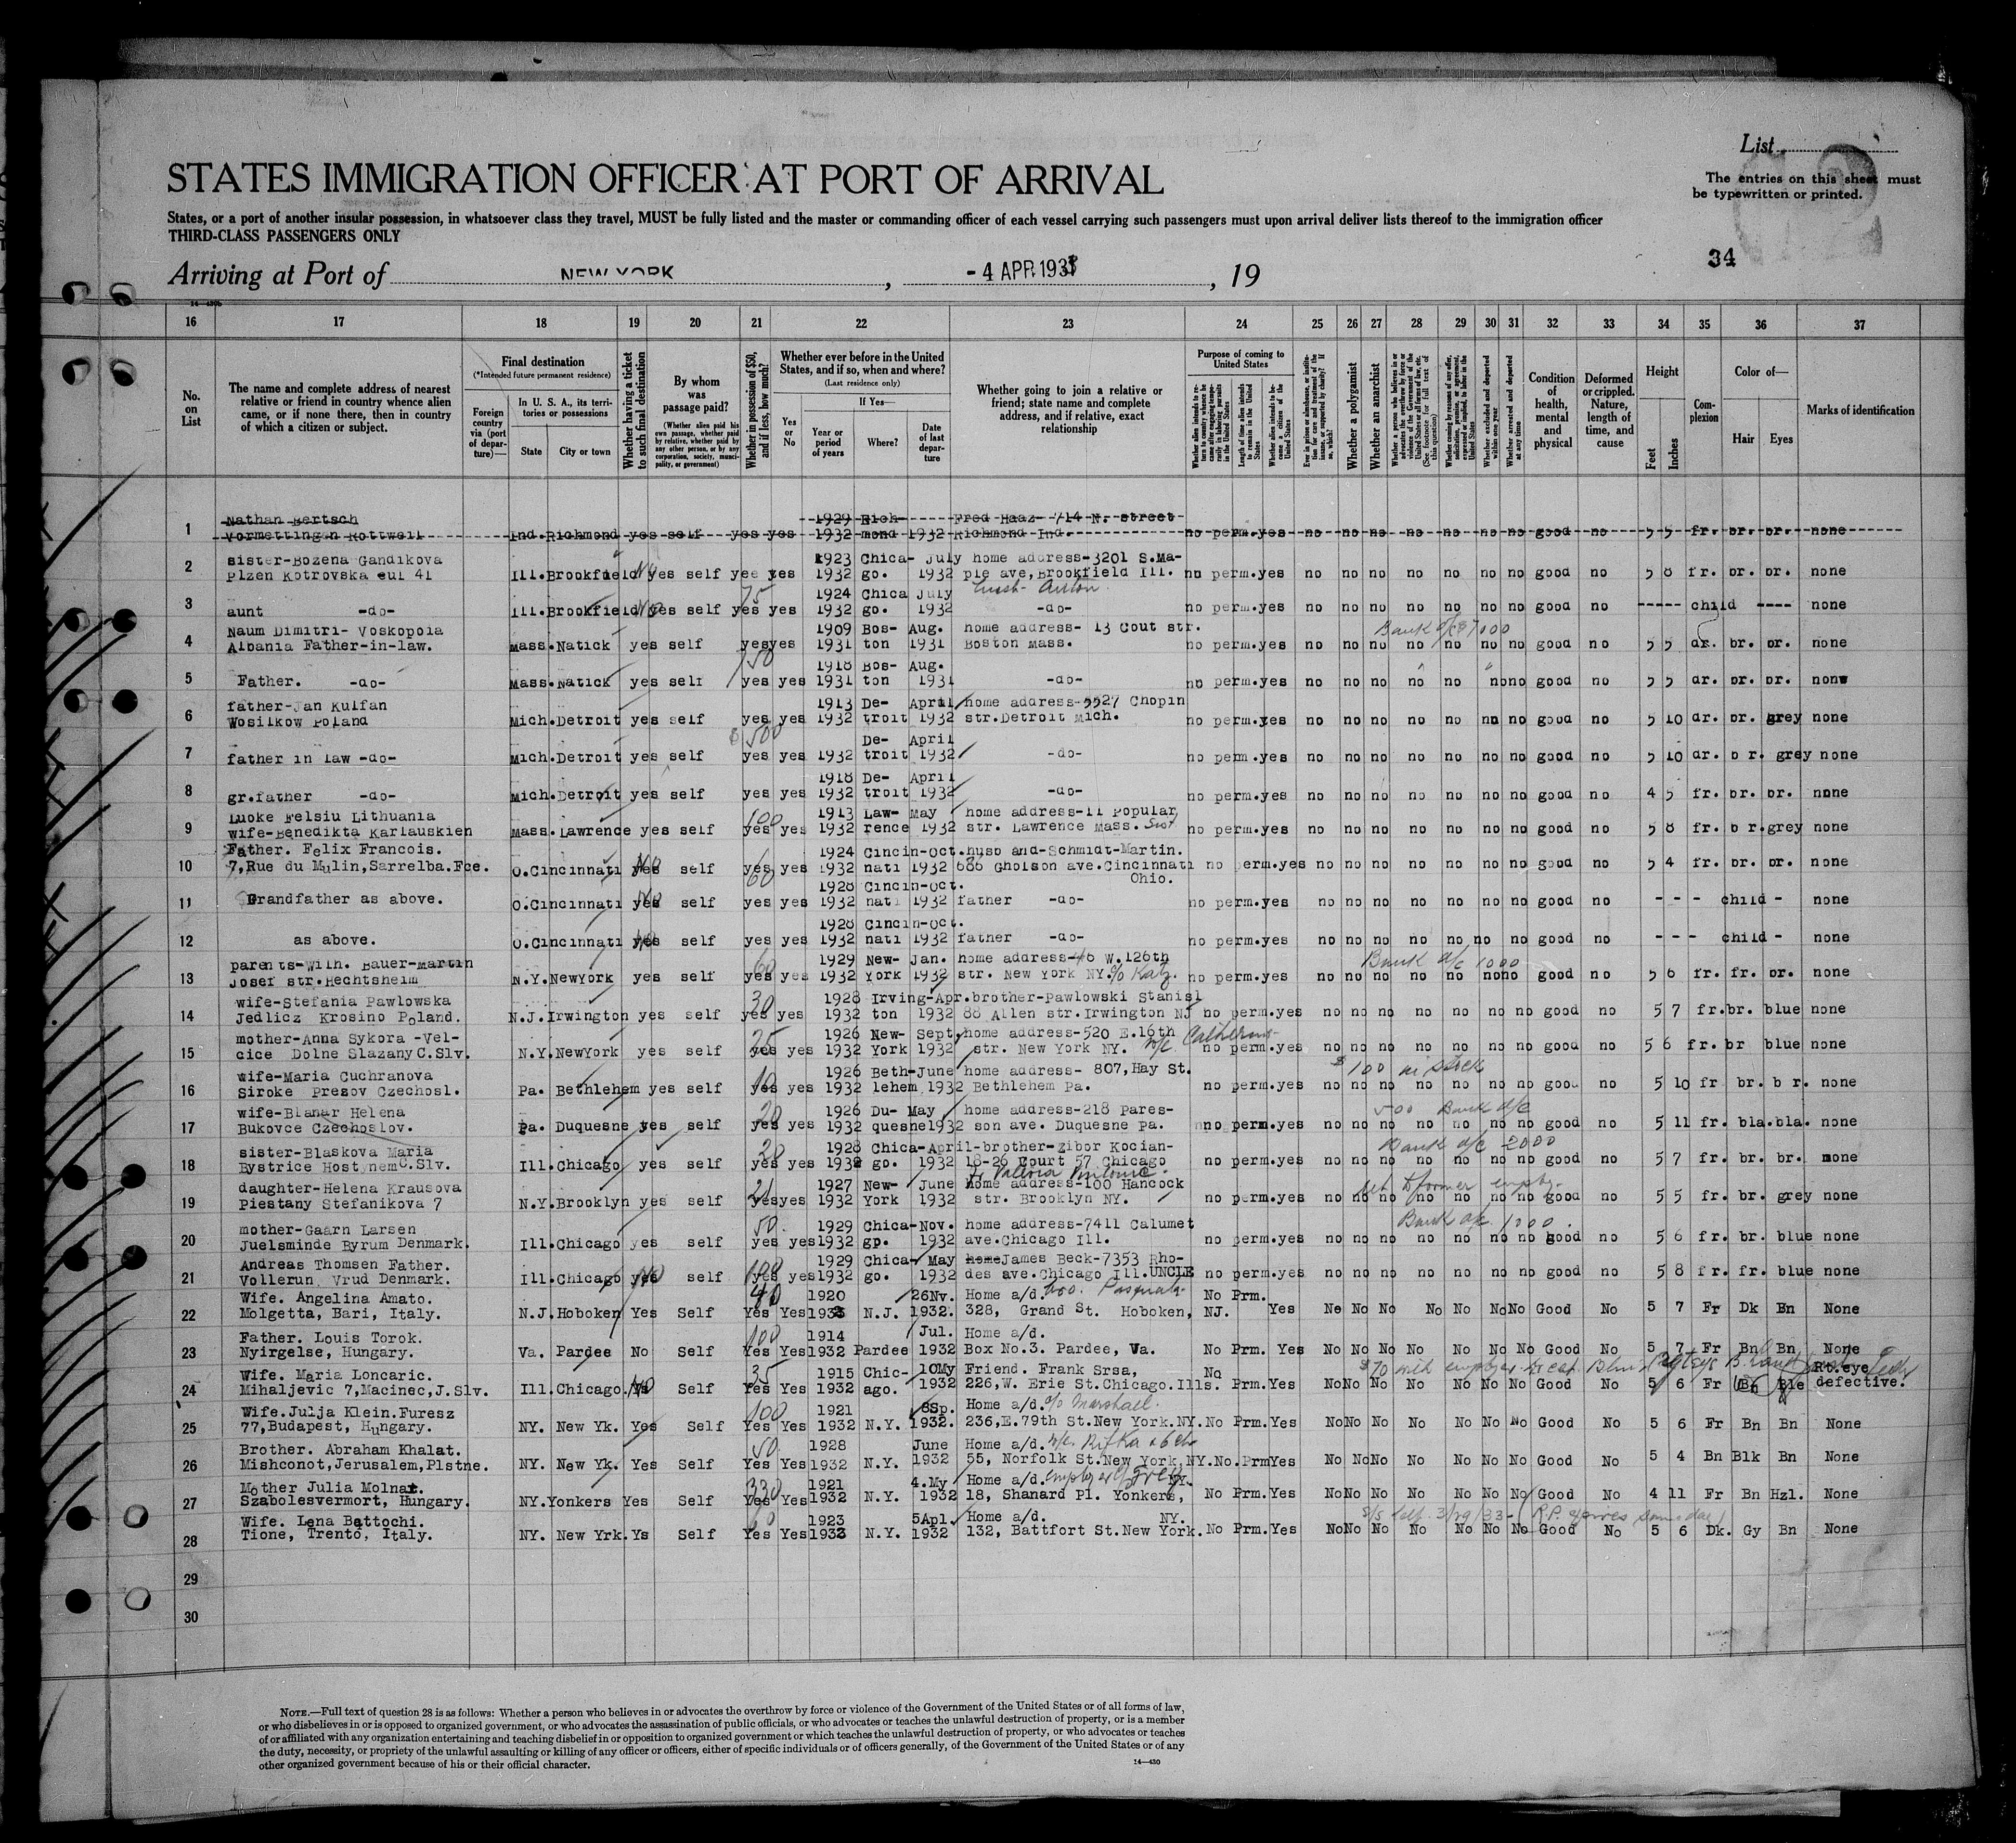 List
STATES IMMIGRATION OFFICER AT PORT OF ARRIVAL
The entries on this sheet must
be typewritten or printed.
States, or a port of another insular possession, in whatsoever class they travel, MUST be fully listed and the master or commanding officer of each vessel carrying such passengers must upon arrival deliver lists thereof to the immigration officer
THIRD-CLASS PASSENGERS ONLY
34
Arriving at Port of NEW YORK, - 4 APR 1933, 19
16 17 18 19 20 21 22 23 24 25 26 27 28 29 30 31 32 33 34 35 36 37
No. on List
The name and complete address of nearest relative or friend in country whence alien came, or if none there, then in country of which a citizen or subject.
Final destination
(*Intended future permanent residence)
Foreign country via (port of departure)—
In U. S. A., its territories or possessions
State City or town
Whether having a ticket to such final destination
By whom was passage paid?
(Whether alien paid his own passage, whether paid by relative, whether paid by any other person, or by any corporation, society, municipality, or government)
Whether in possession of $50, and if less, how much?
Whether ever before in the United States, and if so, when and where?
(Last residence only)
Yes or No
If Yes—
Year or period of years
Where?
Date of last departure
Whether going to join a relative or friend; state name and complete address, and if relative, exact relationship
Purpose of coming to United States
Whether a polygamist
Whether an anarchist
Condition of health, mental and physical
Deformed or crippled. Nature, length of time, and cause
Height
Feet Inches
Complexion
Color of—
Hair Eyes
Marks of identification
1 Nathan Bertsch 1929 Rich- Fred Haaz 714 N. street
Vormettingen Rottweil Ind. Richmond yes self yes yes 1932 mond 1932 Richmond Ind. no perm. yes no no no no no no no good no 5 5 fr. br. br. none
2 sister-Bozena Gandikova 1923 Chica- July home address-3201 S.Ma-
Plzen Kotrovska eul 41 Ill. Brookfield yes self yes yes 1932 go. 1932 ple ave, Brookfield Ill. no perm. yes no no no no no no no good no 5 8 fr. br. br. none
3 75 1924 Chica July
aunt -do- Ill. Brookfield yes self yes yes 1932 go. 1932 -do- no perm. yes no no no no no no no good no ----- child ---- none
4 Naum Dimitri- Voskopoia 1909 Bos- Aug. home address- 13 Cout str.
Albania Father-in-law. Mass. Natick yes self yes yes 1931 ton 1931 Boston Mass. no perm. yes no no no no no no no good no 5 5 dr. br. br. none
5 1918 Bos- Aug.
Father. -do- Mass. Natick yes self yes yes 1931 ton 1931 -do- no perm. yes no no no no no no no good no 5 5 dr. br. br. none
6 father-Jan Kulfan 1913 De- April home address-5527 Chopin
Wosilkow Poland Mich. Detroit yes self yes yes 1932 troit 1932 str. Detroit Mich. no perm. yes no no no no no no no good no 5 10 dr. br. grey none
7 $500 De- April
father in law -do- Mich. Detroit yes self yes yes 1932 troit 1932 -do- no perm. yes no no no no no no no good no 5 10 dr. b r. grey none
8 1918 De- April
gr.father -do- Mich. Detroit yes self yes yes 1932 troit 1932 -do- no perm. yes no no no no no no no good no 4 5 fr. br. br. none
9 Luoke Felsiu Lithuania 100 1913 Law- May home address-11 Popular
wife-Benedikta Karlauskien Mass. Lawrence yes self yes yes 1932 rence 1932 str. Lawrence Mass. no perm. yes no no no no no no no good no 5 8 fr. b r. grey none
10 Father. Felix Francois. 1924 Cincin-Oct. husb and-Schmidt-Martin.
7,Rue du Mulin,Sarrelba.Fce. O. Cincinnati yes self yes yes 1932 nati 1932 686 Gholson ave. Cincinnati no perm. yes no no no no no no no good no 5 4 fr. br. br. none
Ohio.
11 60 1928 Cincin-Oct.
Grandfather as above. O. Cincinnati yes self yes yes 1932 nati 1932 father -do- no perm. yes no no no no no no no good no - - - child - none
12 1928 Cincin-Oct.
as above. O. Cincinnati yes self yes yes 1932 nati 1932 father -do- no perm. yes no no no no no no no good no - - - child - none
13 parents-Wilh. Bauer-Martin 60 1929 New- Jan. home address-48 W.126th Bank a/c 1000
Josef str.Hechtsheim N.Y. NewYork yes self yes yes 1932 York 1932 str. New York NY. c/o Katz. no perm. yes no no no no no no no good no 5 6 fr. fr. br. none
14 wife-Stefania Pawlowska 30 1928 Irving-Apr. brother-Pawlowski Stanisl
Jedlicz Krosino Poland. N.J. Irwington yes self yes yes 1932 ton 1932 88 Allen str. Irwington NJ no perm. yes no no no no no no no good no 5 7 fr. br. blue none
15 mother-Anna Sykora -Vel- 25 1926 New- Sept. home address-520 E.16th
cice Dolne Slazany C.Slv. N.Y. NewYork yes self yes yes 1932 York 1932 str. New York NY. no perm. yes no no no no no no no good no 5 6 fr. br blue none
16 wife-Maria Cuchranova 10 1926 Beth-June home address- 807,Hay St. $100 in stock
Siroke Presov Czechosl. Pa. Bethlehem yes self yes yes 1932 lehem 1932 Bethlehem Pa. no perm. yes no no no no no no no good no 5 10 fr br. b r. none
17 wife-Blanar Helena 20 1926 Du- May home address-218 Pares- 500 Bank a/c
Bukovce Czechoslov. Pa. Duquesne yes self yes yes 1932 quesne 1932 son ave. Duquesne Pa. no perm. yes no no no no no no no good no 5 11 fr. bla. bla. none
18 sister-Blaskova Maria 20 1928 Chica-April-brother-Zibor Kocian- Bank a/c 2000
Bystrice Host nem C.Slv. Ill. Chicago yes self yes yes 1932 go. 1932 18-26 Court 57 Chicago no perm. yes no no no no no no no good no 5 7 fr. br. br. none
19 daughter-Helena Krausova 1927 New- June home address-100 Hancock
Piestany Stefanikova 7 N.Y. Brooklyn yes self yes yes 1932 York 1932 str. Brooklyn NY. no perm. yes no no no no no no no good no 5 5 fr. br. grey none
20 mother-Gaarn Larsen 50. 1929 Chica-Nov. home address-7411 Calumet Bank a/c 1000.
Juelsminde Byrum Denmark. Ill. Chicago yes self yes yes 1932 gp. 1932 ave. Chicago Ill. no perm. yes no no no no no no no good no 5 6 fr. br. blue none
21 Andreas Thomsen Father. 100 1929 Chica- May home James Beck-7353 Rho-
Vollerun Vrud Denmark. Ill. Chicago yes self yes yes 1932 go. 1932 des ave. Chicago Ill. UNCLE no perm. yes no no no no no no no good no 5 8 fr. fr. blue none
22 Wife. Angelina Amato. 40 1920 26Nv. Home a/d. No Prm.
Molgetta, Bari, Italy. N.J. Hoboken Yes Self Yes Yes 1933 N.J. 1932. 328, Grand St. Hoboken, NJ. Yes No No No No No No No Good No 5 7 Fr Dk Bn None
23 Father. Louis Torok. 100 1914 Jul. Home a/d.
Nyirgelse, Hungary. Va. Pardee No Self Yes Yes 1932 Pardee 1932 Box No.3. Pardee, Va. No Prm. Yes No No No No No No No Good No 5 7 Fr Bn Bn None
24 Wife. Maria Loncaric. 35 1915 Chic- 10My Friend. Frank Srsa, No Rt.eye
Mihaljevic 7,Macinec,J.Slv. Ill. Chicago. Ys Self Yes Yes 1932 ago. 1932 226,W. Erie St. Chicago. Ills. Prm. Yes No No No No No No No Good No 5 6 Fr Bn Ble defective.
25 Wife. Julja Klein. Furesz 100 1921 8Sp. Home a/d. c/o Marshall.
77,Budapest, Hungary. NY. New Yk. Yes Self Yes Yes 1932 N.Y. 1932. 236,E.79th St. New York. NY. No Prm. Yes No No No No No No No Good No 5 6 Fr Bn Bn None
26 Brother. Abraham Khalat. 50. 1928 June Home a/d.
Mishconot,Jerusalem,Plstne. NY. New Yk. Yes Self Yes Yes 1932 N.Y. 1932 55, Norfolk St. New York, NY. No. Prm Yes No No No No No No No Good No 5 4 Bn Blk Bn None
27 Mother Julia Molnar. 330 1921 4.My Home a/d. NY.
Szabolesvermort, Hungary. NY. Yonkers Yes Self Yes Yes 1932 N.Y. 1932 18, Shanard Pl. Yonkers, No Prm. Yes No No No No No No No Good No 4 11 Fr Bn Hzl. None
28 Wife. Lena Battochi. 60 1923 5Apl. Home a/d. NY. 3/29/33 - (R.P. expires same day)
Tione, Trento, Italy. NY. New Yrk. Ys Self Yes Yes 1933 N.Y. 1932 132, Battfort St. New York. No Prm. Yes No No No No No No No Good No 5 6 Dk. Gy Bn None
29
30
NOTE.—Full text of question 28 is as follows: Whether a person who believes in or advocates the overthrow by force or violence of the Government of the United States or of all forms of law,
or who disbelieves in or is opposed to organized government, or who advocates the assassination of public officials, or who advocates or teaches the unlawful destruction of property, or is a member
of or affiliated with any organization entertaining and teaching disbelief in or opposition to organized government or which teaches the unlawful destruction of property, or who advocates or teaches
the duty, necessity, or propriety of the unlawful assaulting or killing of any officer or officers, either of specific individuals or of officers generally, of the Government of the United States or of any
other organized government because of his or their official character.
14—430